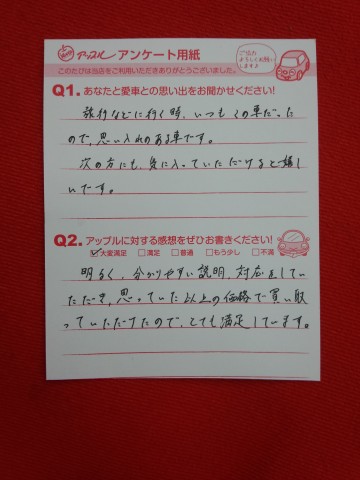 アップル アンケート用紙
ご協力
よろしくお願い
します♪
このたびは当店をご利用いただきありがとうございました。
Q1. あなたと愛車との思い出をお聞かせください!
旅行などに行く時、いつもこの車だった
ので、思い入れのある車です。
次の方にも、気に入っていただけると嬉し
いです。
Q2. アップルに対する感想をぜひお書きください!
☑大変満足 □満足 □普通 □もう少し □不満
明るく、分かりやすい説明、対応をしてい
ただき、思っていた以上の価格で買い取
っていただけたので、とても満足しています。